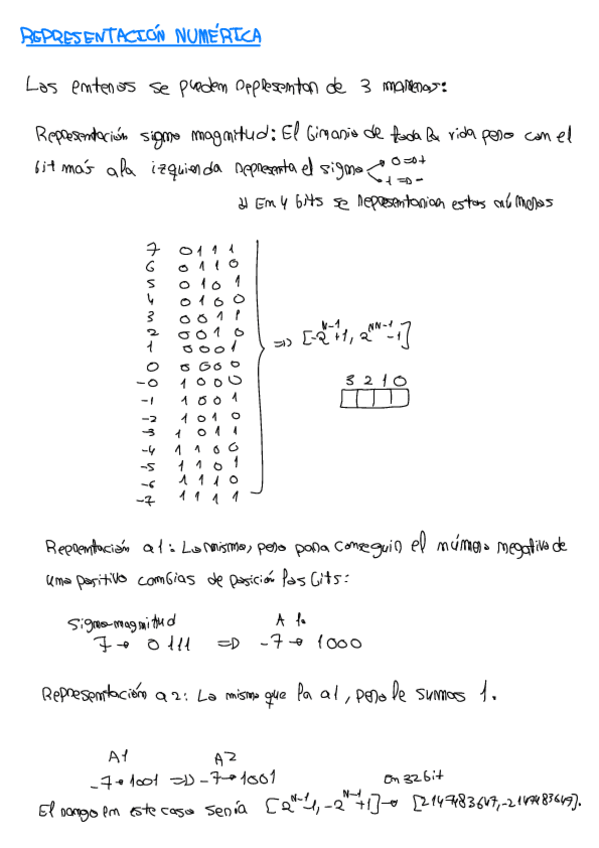 REPRESENTACIÓN NUMÉRICA
Los enteros se pueden representar de 3 maneras:
Representación signo magnitud: El binario de toda la vida pero con el
bit más a la izquierda representa el signo 0 => +
1 => -
En 4 bits se representarían estos números
7 0111
6 0110
5 0101
4 0100
3 0011
2 0010
1 0001
0 0000
-0 1000
-1 1001
-2 1010
-3 1011
-4 1100
-5 1101
-6 1110
-7 1111
=> [-2^N-1 +1, 2^NN-1 -1]
3 2 1 0
Representación a1: Lo mismo, pero para conseguir el número negativo de
uno positivo cambias de posición los bits:
Signo-magnitud A1.
7 → 0111 => -7 → 1000
Representación a2: Lo mismo que la a1, pero le sumas 1.
A1 A2
-7 → 1001 => -7 → 1001
El rango en este caso sería [2^N-1 -1, -2^N-1 +1] → on 32bit [2147483647, -2147483647].